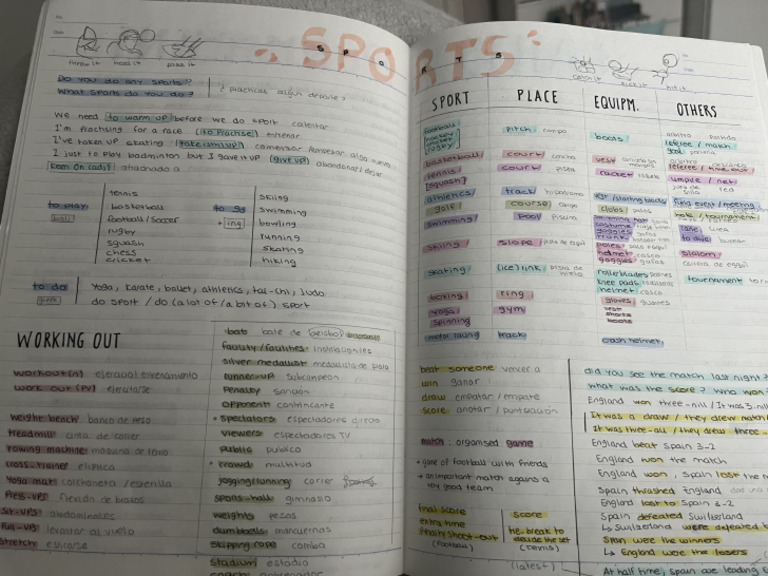 SPORTS
throw it
head it
pass it
catch it
kick it
hit it
Do you do any sports?
What sports do you do?
¿practicas algún deporte?
We need to warm up before we do sport calentar
I'm practising for a race (to practise) entrenar
I've taken up skating (take sth up) comenzar/empezar algo nuevo
I just to play badminton but I gave it up (give up) abandonar/dejar
to play
ball
tennis
basketball
football/soccer
rugby
squash
chess
cricket
to go
+ing
skiing
swimming
bowling
running
skating
hiking
to do
gym
Yoga, karate, ballet, athletics, tai-chi, judo
do sport / do (a lot of / a bit of) sport
WORKING OUT
workout(n)
work out (PV) ejercitarse
weight bench banco de peso
treadmill cinta de correr
rowing machine máquina de remo
cross-trainer elíptica
Yoga mat colchoneta / esterilla
Press-ups flexión de brazos
Sit-ups abdominales
Pull-ups
stretch
bat bate de (beisbol)
facility/facilities instalaciones
silver medallist medallista de plata
runner-up subcampeon
Penalty sanción
opponent contrincante
spectators espectadores directo
viewers espectadores TV
public publico
crowd multitud
jogging/running correr
sports-hall gimnasio
weights pesas
dumbbells mancuernas
skipping rope comba
stadium estadio
SPORT PLACE EQUIPM. OTHERS
football
hockey
rugby
pitch campo
boots
referee / match
goal
basketball court cancha vest
referee / time-out
tennis court pista racket
umpire / net
(squash)
athletics track
vest / starting blocks
field event / meeting
golf course campo clubs palos
hole / tournament
swimming pool piscina
goggles
trunks
lane
to dive
skiing slope
poles
helmet casco
goggles gafas
slalom
skating (ice) link
rollerblades patines
knee pads
helmet casco
tournament
boxing ring gloves guantes
yoga gym
vest
shorts
boots
spinning
motor racing track crash helmet
beat someone vencer a
win ganar
draw empatar / empate
score anotar / puntuación
match: organised game
game of football with friends
an important match agains a
very good team
final score
extra time
Penalty shoot-out
(football)
score
tie break to
decide the set
(tennis)
(latest)
did you see the match last night?
what was the score? Who won?
England won three-nil / It was 3-nil
It was a draw / they drew
It was three-all / they drew three-
England beat Spain 3-2
England won the match
England won, Spain lost the
Spain thrashed England
England lost to Spain 3-2
Spain defeated Switzerland
↳ Switzerland were defeated
Spain were the winners
↳ England were the losers
At half time, Spain are leading